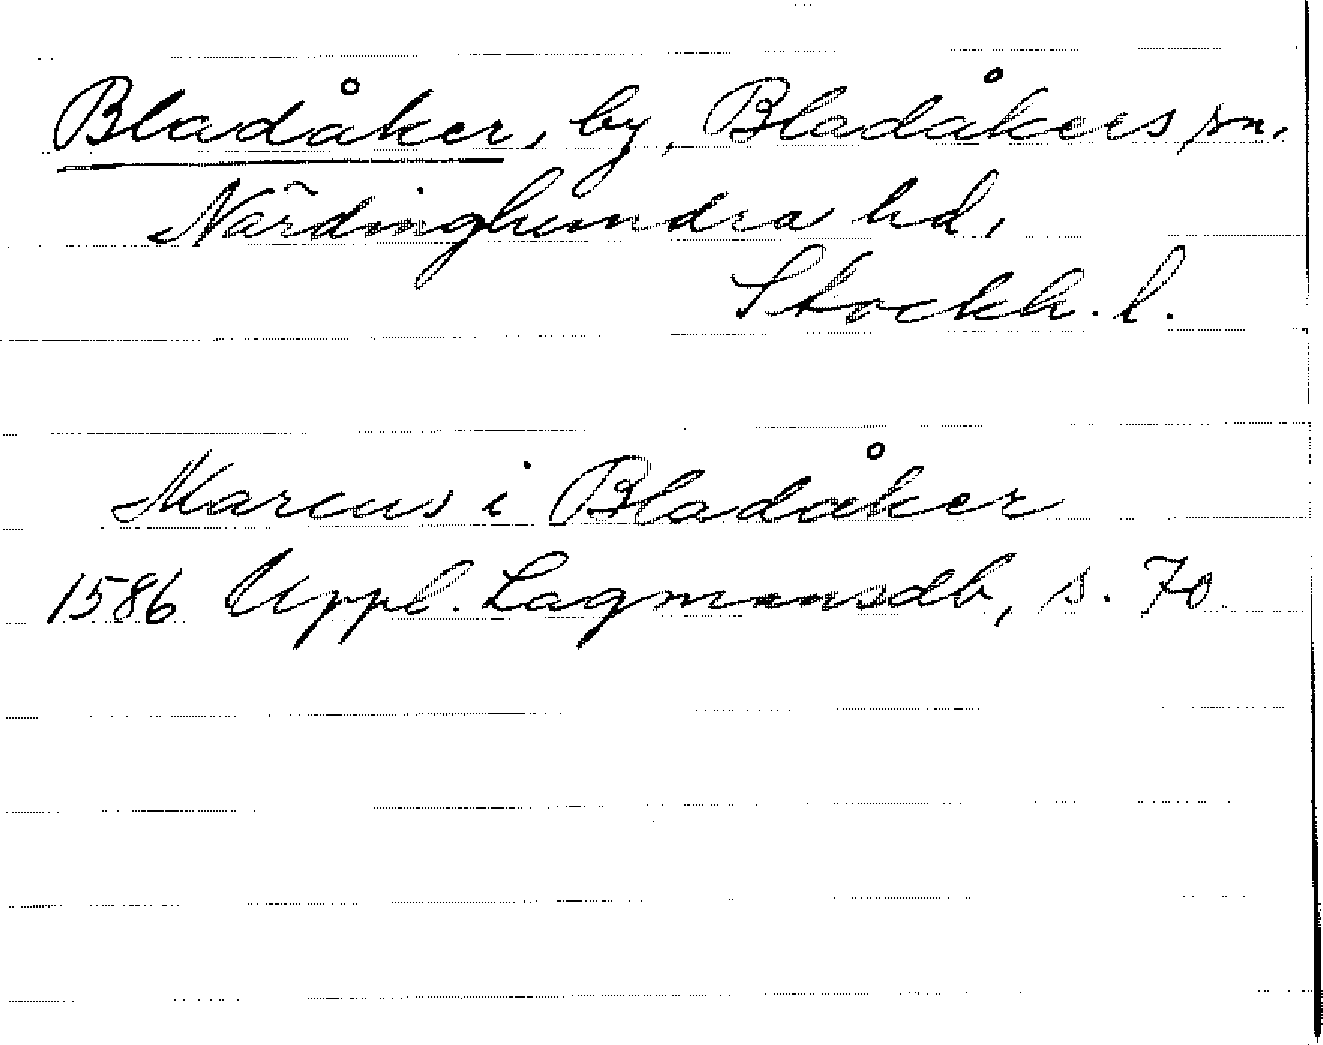 Bladåker, by, Bladåkers sn.
Närdinghundra hd,
Stockh. l.
Marcus i Bladåker
1586 Uppl. Lagmansdb, s. 70